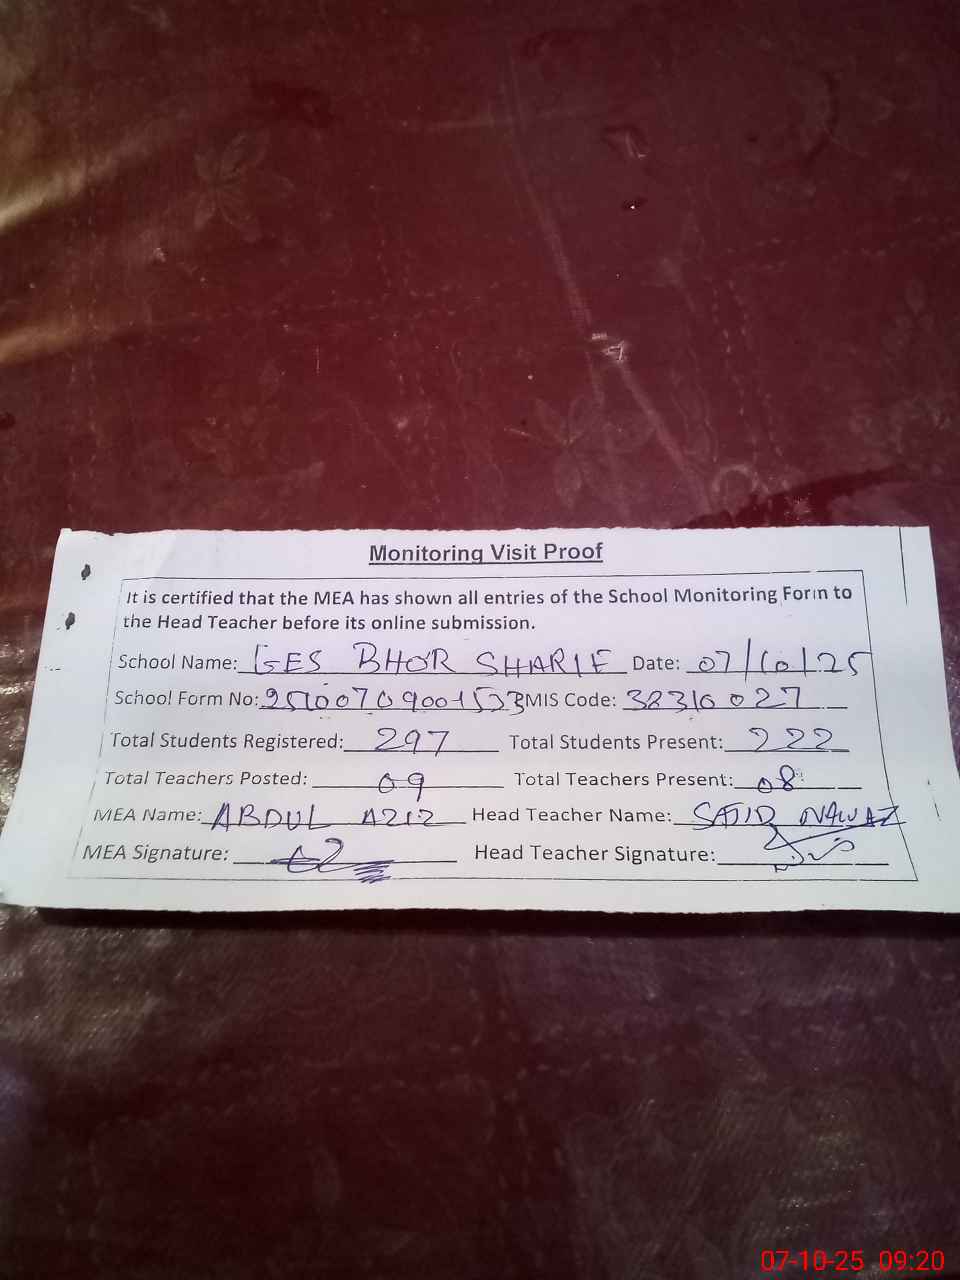 Monitoring Visit Proof
It is certified that the MEA has shown all entries of the School Monitoring Form to
the Head Teacher before its online submission.
School Name: GES BHOR SHARIF Date: 07/10/25
School Form No: EMIS Code: 38310027
Total Students Registered: 297 Total Students Present: 222
Total Teachers Posted: 09 Total Teachers Present: 08
MEA Name: ABDUL AZIZ Head Teacher Name: SAJID NAWAZ
MEA Signature: Head Teacher Signature:
07-10-25 09:20